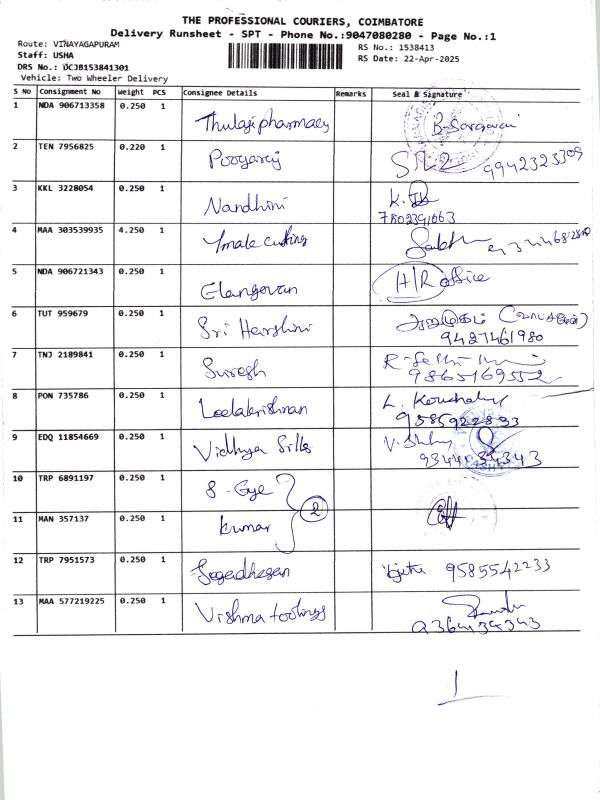 THE PROFESSIONAL COURIERS, COIMBATORE
Delivery Runsheet - SPT - Phone No.:9047080280 - Page No.:1
Route: VINAYAGAPURAM
Staff: USHA
DRS No.: DCJB153841301
Vehicle: Two Wheeler Delivery
RS No.: 1538413
RS Date: 22-Apr-2025
S No Consignment No Weight PCS Consignee Details Remarks Seal & Signature
1 NDA 906713358 0.250 1 Thulasi pharmacy
2 TEN 7956825 0.220 1 9942323309
3 KKL 3228054 0.250 1 Nandhini
4 MAA 303539935 4.250 1
5 NDA 906721343 0.250 1 Elangovan H/R office
6 TUT 959679 0.250 1 Sri Harshini
9487461980
7 TNJ 2189841 0.250 1 Suresh
9865169552
8 PON 735786 0.250 1 Leelakrishnan
9585922893
9 EDQ 11854669 0.250 1 Vidhya Sills
9344434343
10 TRP 6891197 0.250 1
11 MAN 357137 0.250 1 kumar 2
12 TRP 7951573 0.250 1 9585542233
13 MAA 577219225 0.250 1 Vishma toolings
1